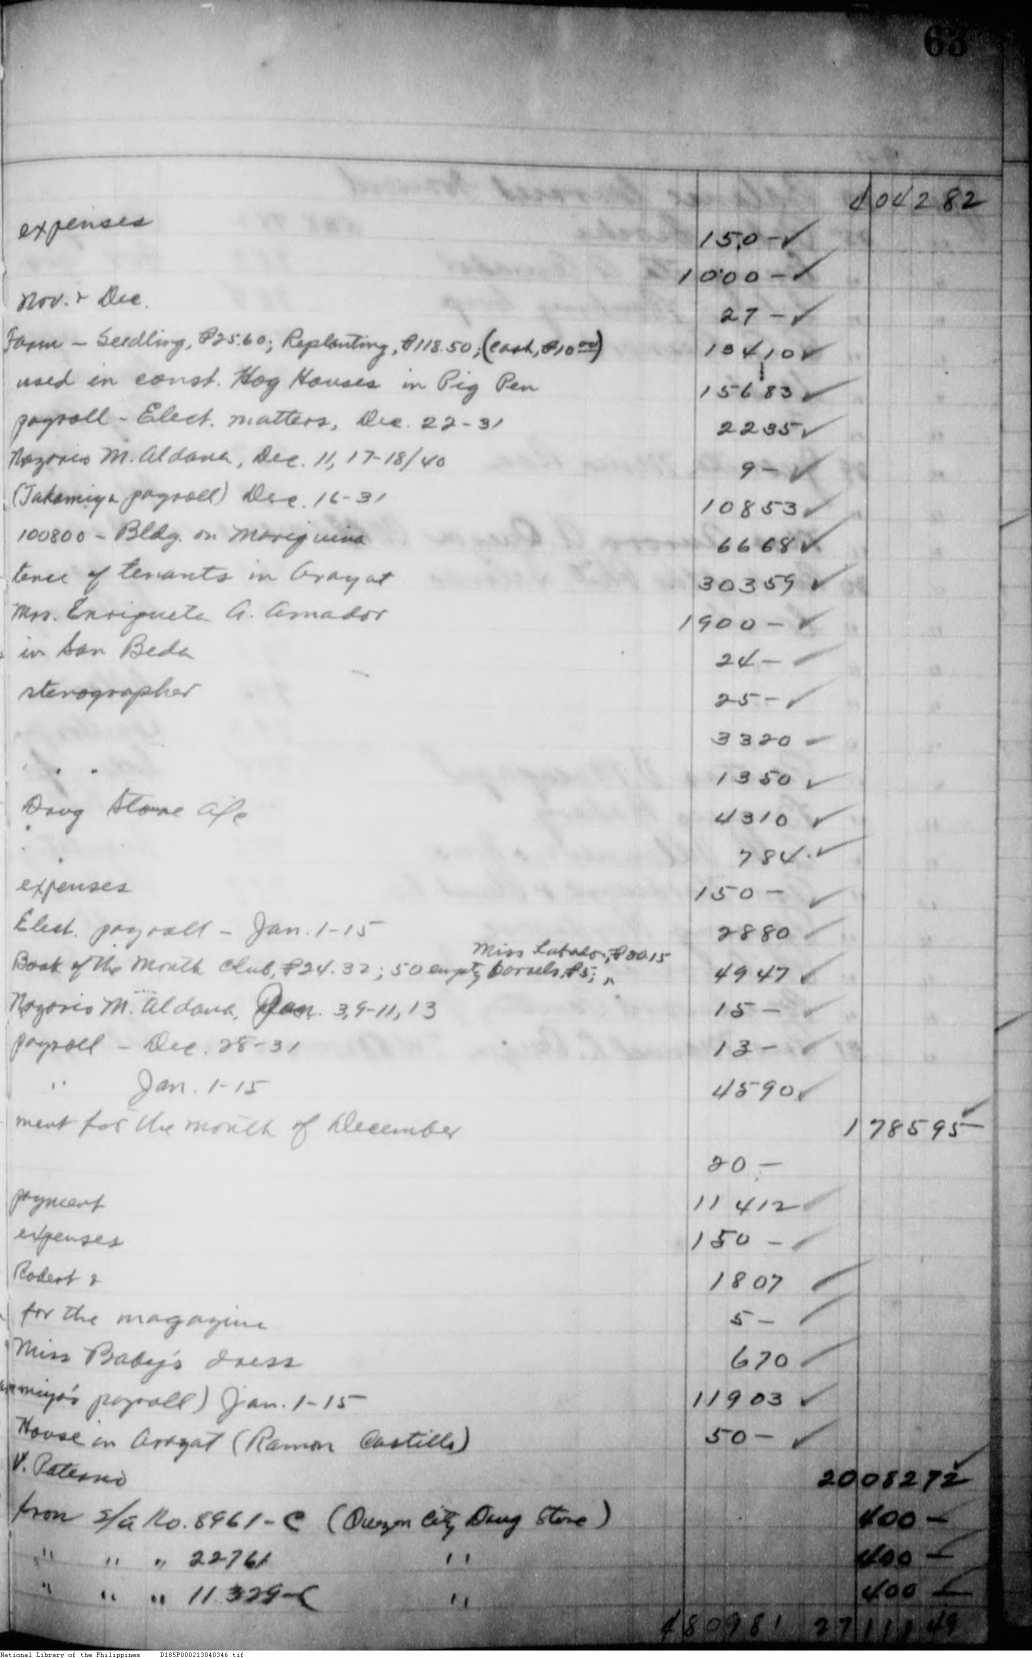 63
404282
expenses 150 - ✓
1000 - ✓
Nov. & Dec. 27 - ✓
Farm - Seedling, ₱25.60; Replanting, ₱118.50; (Cash, ₱10.00) 13410 ✓
used in const. Hog Houses in Pig Pen 15683 ✓
payroll - Elect. matters, Dec. 22-31 2235 ✓
Nazario M. Aldana, Dec. 11, 17-18/40 9 - ✓
(Takamiya payroll) Dec. 16-31 10853 ✓
100800 - Bldg. on Mariquina 6668 ✓
tence of tenants in Arayat 30359 ✓
Mrs. Enriqueta A. Amador 1900 - ✓
in San Beda 24 - ✓
stenographer 25 - ✓
3320 ✓
" " 1350 ✓
Drug Store a/c 4310 ✓
" " 784 ✓
expenses 150 - ✓
Elect. payroll - Jan. 1-15 2880 ✓
Miss Labador, ₱20.15
Book of the Month Club, ₱24.32; 50 empty barrels, ₱5; 4947 ✓
Nazario M. Aldana, Jan. 3, 9-11, 13 15 - ✓
payroll - Dec. 28-31 13 - ✓
" Jan. 1-15 4590 ✓
ment for the month of December 178595 ✓
20 -
payment 11412 ✓
expenses 150 - ✓
Robert & 1807 ✓
for the magazine 5 - ✓
Miss Baby's dress 670 ✓
miya's payroll) Jan. 1-15 11903 ✓
House in Arayat (Ramon Castillo) 50 - ✓
V. Paterno 2008272 ✓
from S/A No. 8961-C (Quezon City Drug Store) 400 -
" " " 22761 " 400 -
" " " 11329-C " 400 -
480981 2711149
National Library of the Philippines D185P000213040346.tif